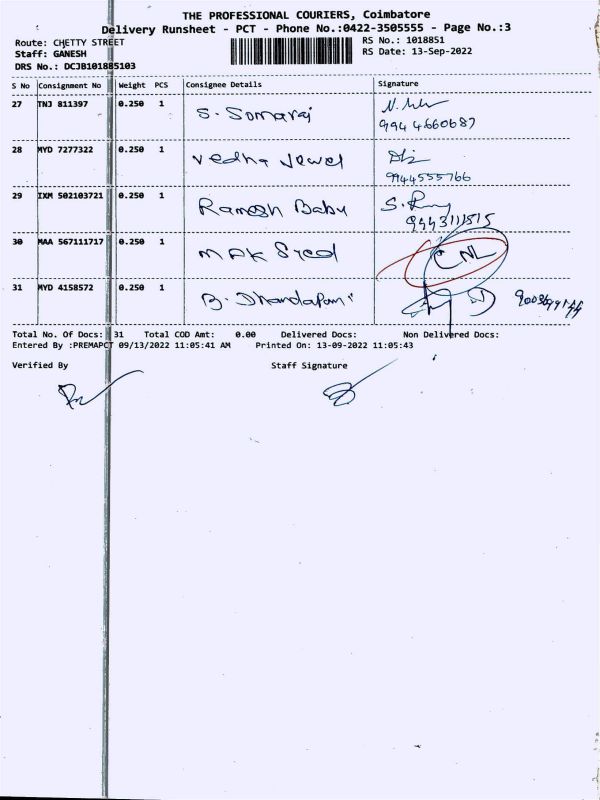 THE PROFESSIONAL COURIERS, Coimbatore
Delivery Runsheet - PCT - Phone No.:0422-3505555 - Page No.:3
Route: CHETTY STREET RS No.: 1018851
Staff: GANESH RS Date: 13-Sep-2022
DRS No.: DCJB101885103
S No Consignment No Weight PCS Consignee Details Signature
27 TNJ 811397 0.250 1 S. Somaraj
994 4660687
28 MYD 7277322 0.250 1 Vedha Jewel
9944555766
29 IXM 502103721 0.250 1 Ramesh Babu
9443111515
30 MAA 567111717 0.250 1 MAK Syed CNL
31 MYD 4158572 0.250 1 B. Dhandapani
Total No. Of Docs: 31 Total COD Amt: 0.00 Delivered Docs: Non Delivered Docs:
Entered By :PREMAPCT 09/13/2022 11:05:41 AM Printed On: 13-09-2022 11:05:43
Verified By Staff Signature